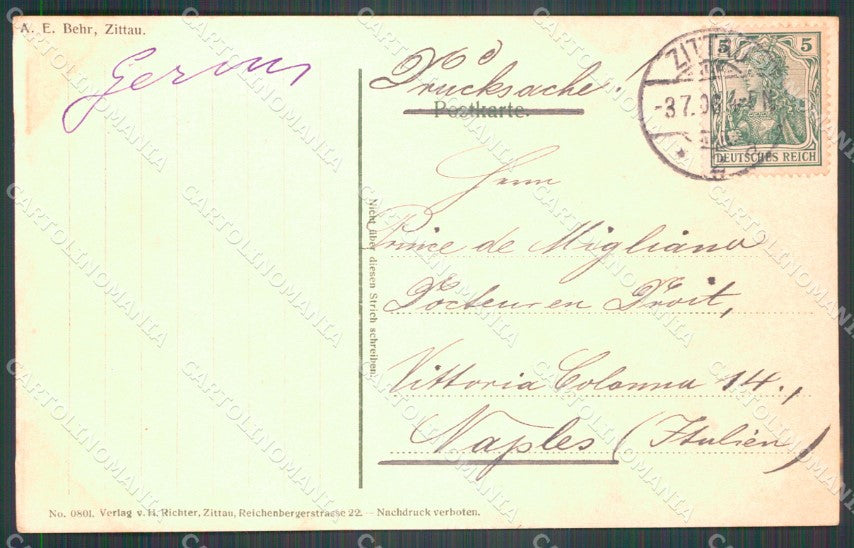 A. E. Behr, Zittau.
Drucksache!
Postkarte.
ZITTAU
-3.7.06
5 5
DEUTSCHES REICH
Herrn
Prince de Migliano
Docteur en Droit,
Vittoria Colonna 14.,
Naples (Italien)
Nicht über diesen Strich schreiben.
No. 0801. Verlag v. H. Richter, Zittau, Reichenbergerstrasse 22. — Nachdruck verboten.
CARTOLINOMANIA